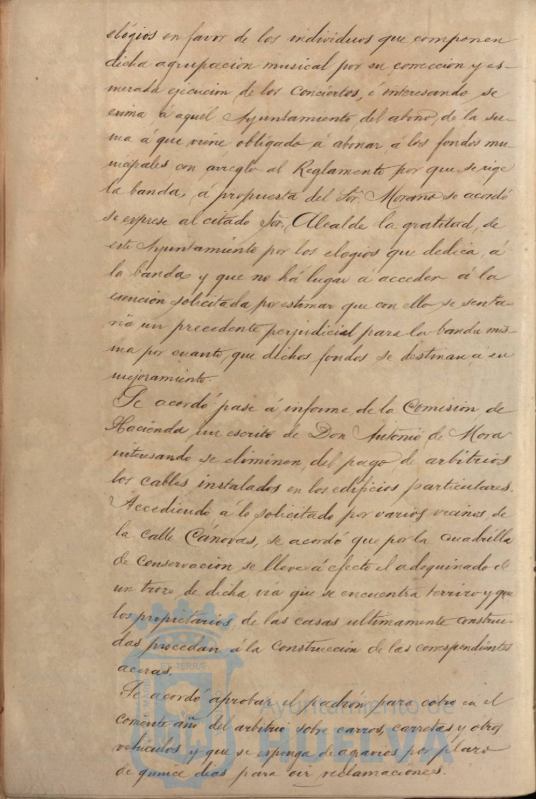 elógios en favor de los individuos que componen
dicha agrupación musical por su corrección y es-
merada ejecución de los Conciertos, é interesando se
exima á aquel Ayuntamiento del abono, de la su-
ma á que viene obligado á abonar á los fondos mu-
nicipales con arreglo al Reglamento por que se rige
la banda, á propuesta del Sor. Morano se acordó
se exprese al citado Sor. Alcalde la gratitud, de
este Ayuntamiento por los elogios que dedica, á
la banda y que no há lugar á acceder á la
exención solicitada por estimar que con ello se senta-
ría un precedente perjudicial para la banda mis-
ma por cuanto que dichos fondos se destinan á su
mejoramiento.
Se acordó pase á informe de la Comisión de
Hacienda, un escrito de Don Antonio de Mora
interesando se eliminen, del pago de arbitrios
los cables instalados en los edificios particulares.
Accediendo á lo solicitado por varios vecinos de
la calle Cánovas, se acordó que por la cuadrilla
de conservación se lleve á efecto el adoquinado de
un trozo de dicha vía que se encuentra terrizo y que
los propietarios de las casas ultimamente construi-
das procedan á la construcción de las correspondientes
aceras.
Se acordó aprobar el padrón para cobro en el
corriente año del arbitrio sobre carros, carretas y otros
vehiculos y que se exponga de agravios por plazo
de quince dias para oir reclamaciones.
Ayuntamiento de
HUELVA